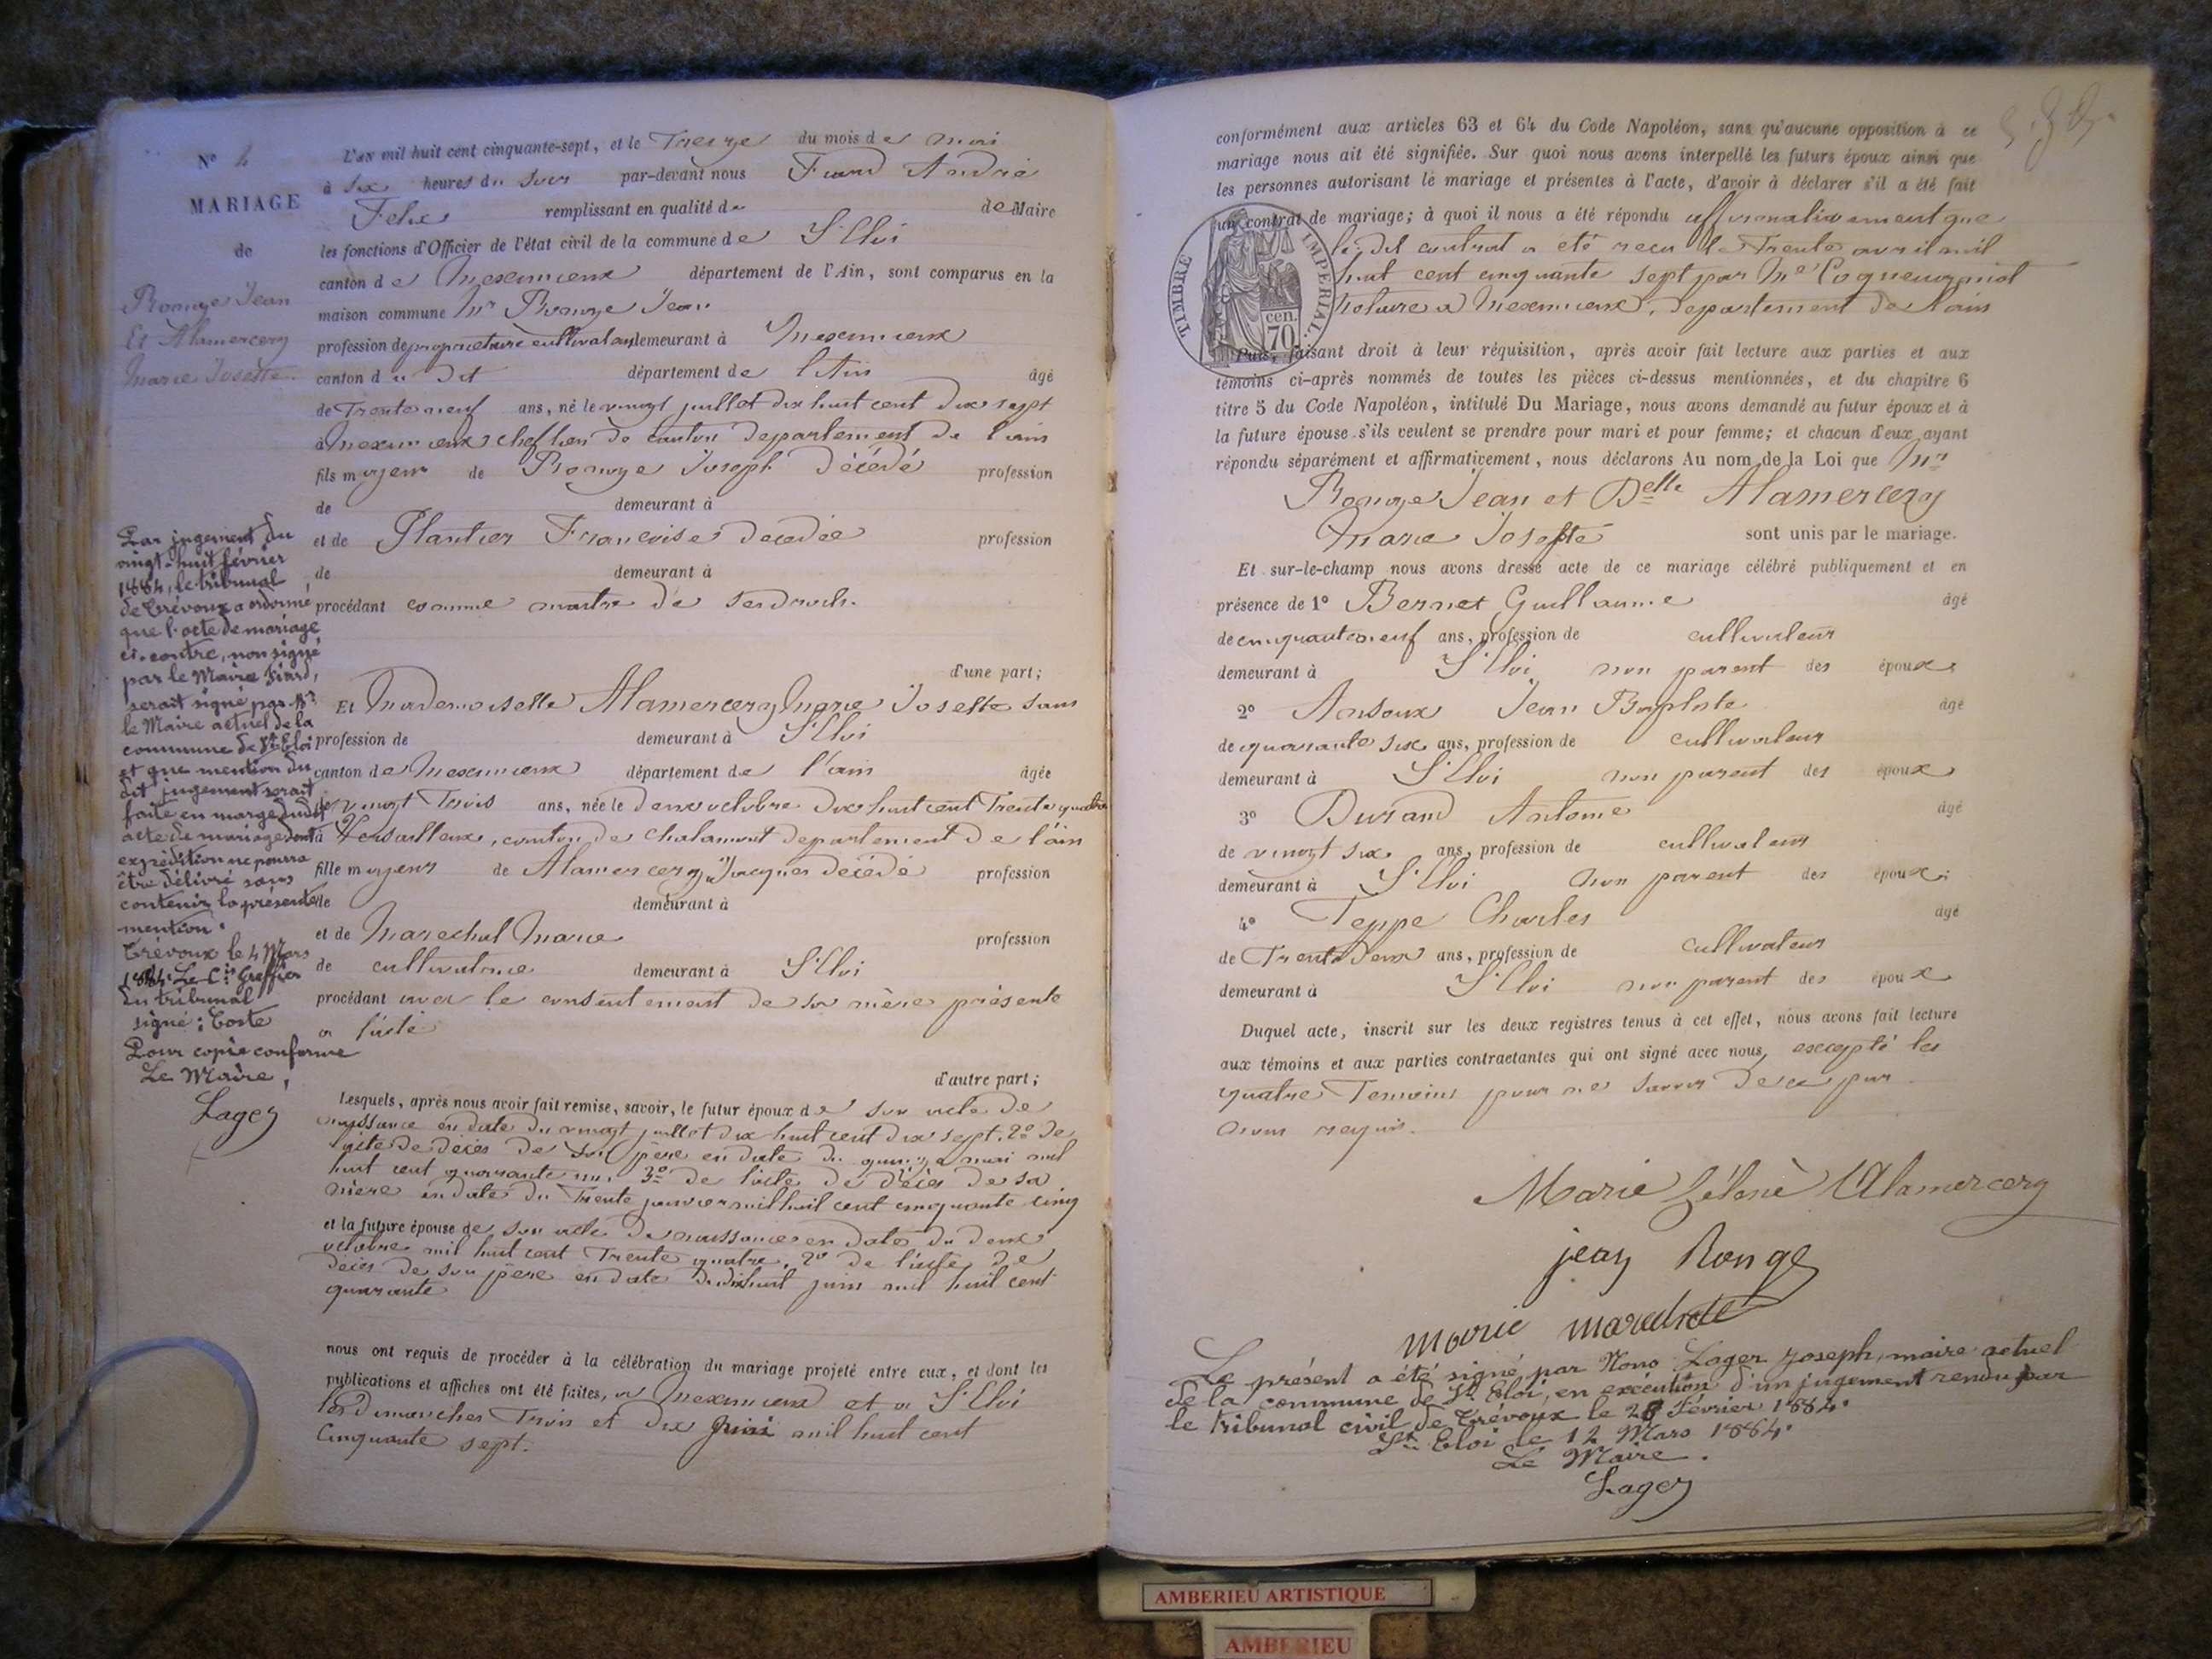 N° 4
MARIAGE
de
Ronge Jean
Et Alamercery
Marie Josette
L'an mil huit cent cinquante-sept, et le Treize du mois de mai
à six heures du soir par-devant nous Fiard André
Felix remplissant en qualité de de Maire
les fonctions d'Officier de l'état civil de la commune de St Eloi
canton de Meximieux département de l'Ain, sont comparus en la
maison commune Mr Ronge Jean
profession de propriétaire cultivateur demeurant à Meximieux
canton du dit département de l'Ain âgé
de Trente neuf ans, né le vingt juillet dix huit cent dix sept
à Meximieux chef lieu de canton département de l'ain
fils majeur de Ronge Joseph décédé profession
de demeurant à
et de Plantier Françoise décédée profession
de demeurant à
procédant comme maitre de ses droits.
d'une part;
Et Mademoiselle Alamercery Marie Josette sans
profession de demeurant à St Eloi
canton de Meximieux département de l'ain âgée
de vingt Trois ans, née le deux octobre dix huit cent Trente quatre
à Versailleux, canton de Chalamont département de l'ain
fille majeure de Alamercery Jacques décédé profession
de demeurant à
et de Marechal Marie profession
de cultivatrice demeurant à St Eloi
procédant avec le consentement de sa mère présente
a l'acte
d'autre part;
Lesquels, après nous avoir fait remise, savoir, le futur époux de son acte de
naissance en date du vingt juillet dix huit cent dix sept. 2° de
l'acte de décès de son père en date du quinze mai mil
huit cent quarante un. 3° de l'acte de décès de sa
mère en date du Trente janvier mil huit cent cinquante cinq
et la future épouse de son acte de naissance en date du deux
octobre mil huit cent Trente quatre. 2° de l'acte de
décès de son père en date du dixhuit juin mil huit cent
quarante
nous ont requis de procéder à la célébration du mariage projeté entre eux, et dont les
publications et affiches ont été faites, a Meximieux et a St Eloi
les dimanches Trois et dix mai mil huit cent
Cinquante sept.
Par jugement du
vingt-huit février
1884, le tribunal
de Trévoux a ordonné
que l'acte de mariage
ci-contre, non signé
par le Maire Fiard,
serait signé par Mr
le Maire actuel de la
commune de St Eloi
et que mention du
dit jugement serait
faite en marge dudit
acte de mariage dont
expédition ne pourra
être délivré sans
contenir la présente
mention.
Trévoux le 4 Mars
1884. Le Cis Greffier
du tribunal
signé: Coste
Pour copie conforme
Le Maire,
Lager
conformément aux articles 63 et 64 du Code Napoléon, sans qu'aucune opposition à ce
mariage nous ait été signifiée. Sur quoi nous avons interpellé les futurs époux ainsi que
les personnes autorisant le mariage et présentes à l'acte, d'avoir à déclarer s'il a été fait
un contrat de mariage; à quoi il nous a été répondu affirmativement que
le dit contrat a été reçu le Trente avril mil
huit cent cinquante sept par Me
Notaire a Meximieux, département de l'ain
TIMBRE IMPÉRIAL.
cen.
70
Puis, faisant droit à leur réquisition, après avoir fait lecture aux parties et aux
témoins ci-après nommés de toutes les pièces ci-dessus mentionnées, et du chapitre 6
titre 5 du Code Napoléon, intitulé Du Mariage, nous avons demandé au futur époux et à
la future épouse s'ils veulent se prendre pour mari et pour femme; et chacun d'eux ayant
répondu séparément et affirmativement, nous déclarons Au nom de la Loi que Mr
Ronge Jean et Delle Alamercery
Marie Josette sont unis par le mariage.
Et sur-le-champ nous avons dressé acte de ce mariage célébré publiquement et en
présence de 1° Bernet Guillaume âgé
de cinquante neuf ans, profession de cultivateur
demeurant à St Eloi non parent des époux
2° Ansoux Jean Baptiste âgé
de quarante six ans, profession de cultivateur
demeurant à St Eloi non parent des époux
3° Durand Antoine âgé
de vingt six ans, profession de cultivateur
demeurant à St Eloi non parent des époux
4° Teppe Charles âgé
de Trente deux ans, profession de cultivateur
demeurant à St Eloi non parent des époux
Duquel acte, inscrit sur les deux registres tenus à cet effet, nous avons fait lecture
aux témoins et aux parties contractantes qui ont signé avec nous, excepté les
quatre Temoins pour ne savoir de ce par
nous requis.
Marie Alamercery
jean Ronge
marie
Le présent a été signé par Nous Lager Joseph, maire actuel
de la commune de St Eloi, en exécution d'un jugement rendu par
le tribunal civil de Trévoux le 28 Février 1884.
St Eloi le 12 Mars 1884.
Le Maire.
Lager
AMBERIEU ARTISTIQUE
AMBERIEU